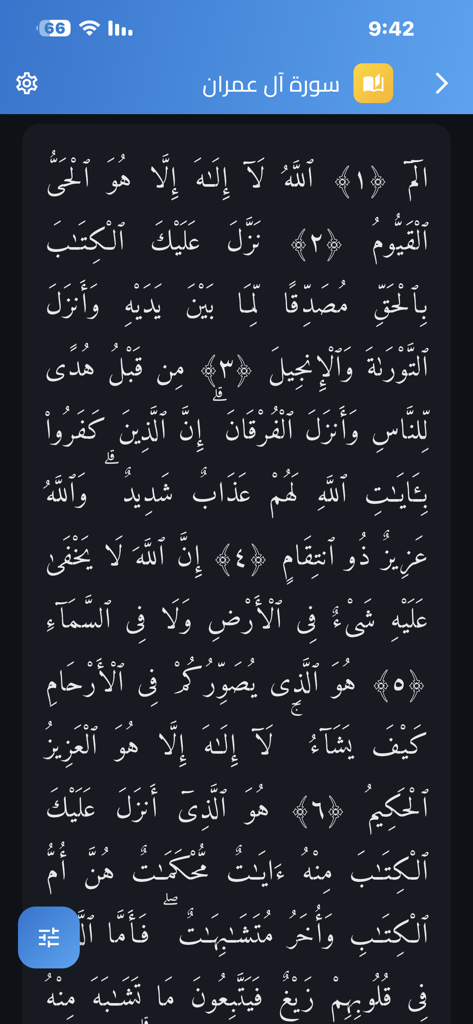 9:42
66
سورة آل عمران
الٓمٓ ﴿١﴾ ٱللَّهُ لَآ إِلَـٰهَ إِلَّا هُوَ ٱلْحَىُّ
ٱلْقَيُّومُ ﴿٢﴾ نَزَّلَ عَلَيْكَ ٱلْكِتَـٰبَ
بِٱلْحَقِّ مُصَدِّقًا لِّمَا بَيْنَ يَدَيْهِ وَأَنزَلَ
ٱلتَّوْرَىٰةَ وَٱلْإِنجِيلَ ﴿٣﴾ مِن قَبْلُ هُدًى
لِّلنَّاسِ وَأَنزَلَ ٱلْفُرْقَانَ ۗ إِنَّ ٱلَّذِينَ كَفَرُوا۟
بِـَٔايَـٰتِ ٱللَّهِ لَهُمْ عَذَابٌ شَدِيدٌ ۗ وَٱللَّهُ
عَزِيزٌ ذُو ٱنتِقَامٍ ﴿٤﴾ إِنَّ ٱللَّهَ لَا يَخْفَىٰ
عَلَيْهِ شَىْءٌ فِى ٱلْأَرْضِ وَلَا فِى ٱلسَّمَآءِ
﴿٥﴾ هُوَ ٱلَّذِى يُصَوِّرُكُمْ فِى ٱلْأَرْحَامِ
كَيْفَ يَشَآءُ ۚ لَآ إِلَـٰهَ إِلَّا هُوَ ٱلْعَزِيزُ
ٱلْحَكِيمُ ﴿٦﴾ هُوَ ٱلَّذِىٓ أَنزَلَ عَلَيْكَ
ٱلْكِتَـٰبَ مِنْهُ ءَايَـٰتٌ مُّحْكَمَـٰتٌ هُنَّ أُمُّ
ٱلْكِتَـٰبِ وَأُخَرُ مُتَشَـٰبِهَـٰتٌ ۖ فَأَمَّا
فِى قُلُوبِهِمْ زَيْغٌ فَيَتَّبِعُونَ مَا تَشَـٰبَهَ مِنْهُ